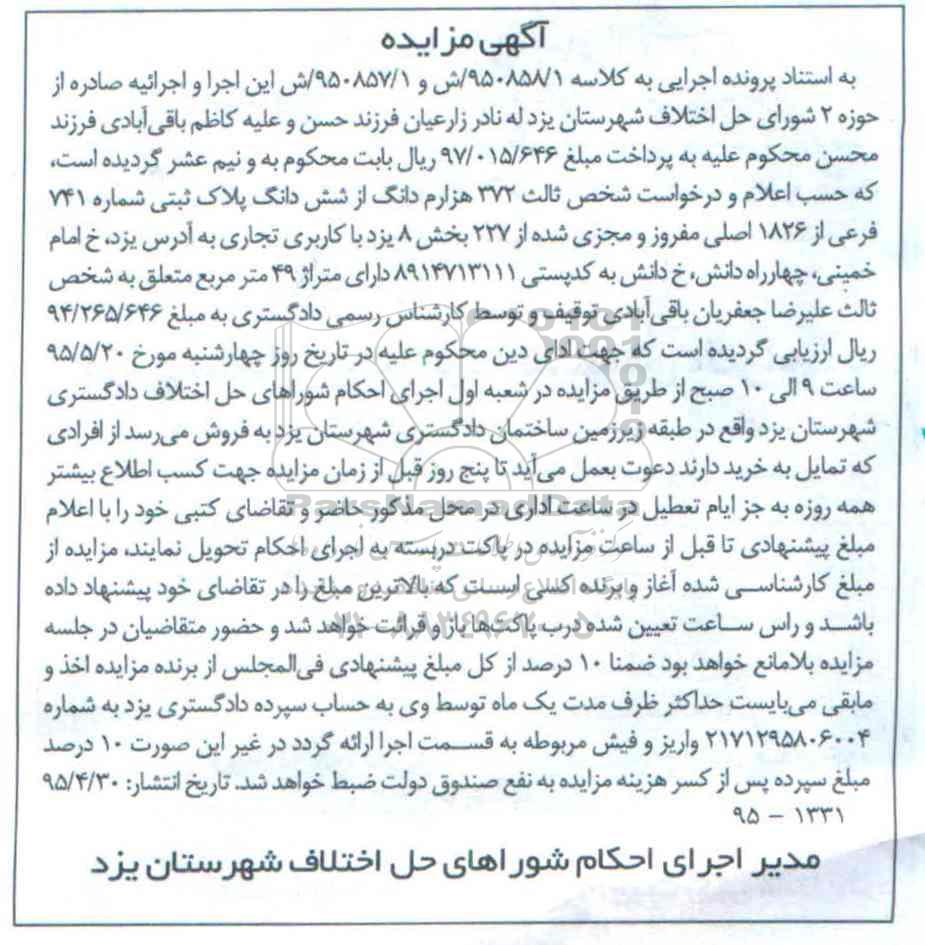 آگهی مزایده
به استناد پرونده اجرایی به کلاسه ۹۵۰۸۵۸/۱/ش و ۹۵۰۸۵۷/۱/ش این اجرا و اجرائیه صادره از
حوزه ۲ شورای حل اختلاف شهرستان یزد له نادر زارعیان فرزند حسن و علیه کاظم باقی‌آبادی فرزند
محسن محکوم علیه به پرداخت مبلغ ۹۷/۰۱۵/۶۴۶ ریال بابت محکوم به و نیم عشر گردیده است،
که حسب اعلام و درخواست شخص ثالث ۳۷۲ هزارم دانگ از شش دانگ پلاک ثبتی شماره ۷۴۱
فرعی از ۱۸۲۶ اصلی مفروز و مجزی شده از ۲۲۷ بخش ۸ یزد با کاربری تجاری به آدرس یزد، خ امام
خمینی، چهارراه دانش، خ دانش به کدپستی ۸۹۱۴۷۱۳۱۱۱ دارای متراژ ۴۹ متر مربع متعلق به شخص
ثالث علیرضا جعفریان باقی‌آبادی توقیف و توسط کارشناس رسمی دادگستری به مبلغ ۹۴/۲۶۵/۶۴۶
ریال ارزیابی گردیده است که جهت ادای دین محکوم علیه در تاریخ روز چهارشنبه مورخ ۹۵/۵/۲۰
ساعت ۹ الی ۱۰ صبح از طریق مزایده در شعبه اول اجرای احکام شوراهای حل اختلاف دادگستری
شهرستان یزد واقع در طبقه زیرزمین ساختمان دادگستری شهرستان یزد به فروش می‌رسد از افرادی
که تمایل به خرید دارند دعوت بعمل می‌آید تا پنج روز قبل از زمان مزایده جهت کسب اطلاع بیشتر
همه روزه به جز ایام تعطیل در ساعت اداری در محل مذکور حاضر و تقاضای کتبی خود را با اعلام
مبلغ پیشنهادی تا قبل از ساعت مزایده در پاکت دربسته به اجرای احکام تحویل نمایند، مزایده از
مبلغ کارشناسی شده آغاز و برنده کسی است که بالاترین مبلغ را در تقاضای خود پیشنهاد داده
باشد و راس ساعت تعیین شده درب پاکت‌ها باز و قرائت خواهد شد و حضور متقاضیان در جلسه
مزایده بلامانع خواهد بود ضمنا ۱۰ درصد از کل مبلغ پیشنهادی فی‌المجلس از برنده مزایده اخذ و
مابقی می‌بایست حداکثر ظرف مدت یک ماه توسط وی به حساب سپرده دادگستری یزد به شماره
۲۱۷۱۲۹۵۸۰۶۰۰۴ واریز و فیش مربوطه به قسمت اجرا ارائه گردد در غیر این صورت ۱۰ درصد
مبلغ سپرده پس از کسر هزینه مزایده به نفع صندوق دولت ضبط خواهد شد. تاریخ انتشار: ۹۵/۴/۳۰
۱۳۳۱ – ۹۵
مدیر اجرای احکام شوراهای حل اختلاف شهرستان یزد
ParsNamadData